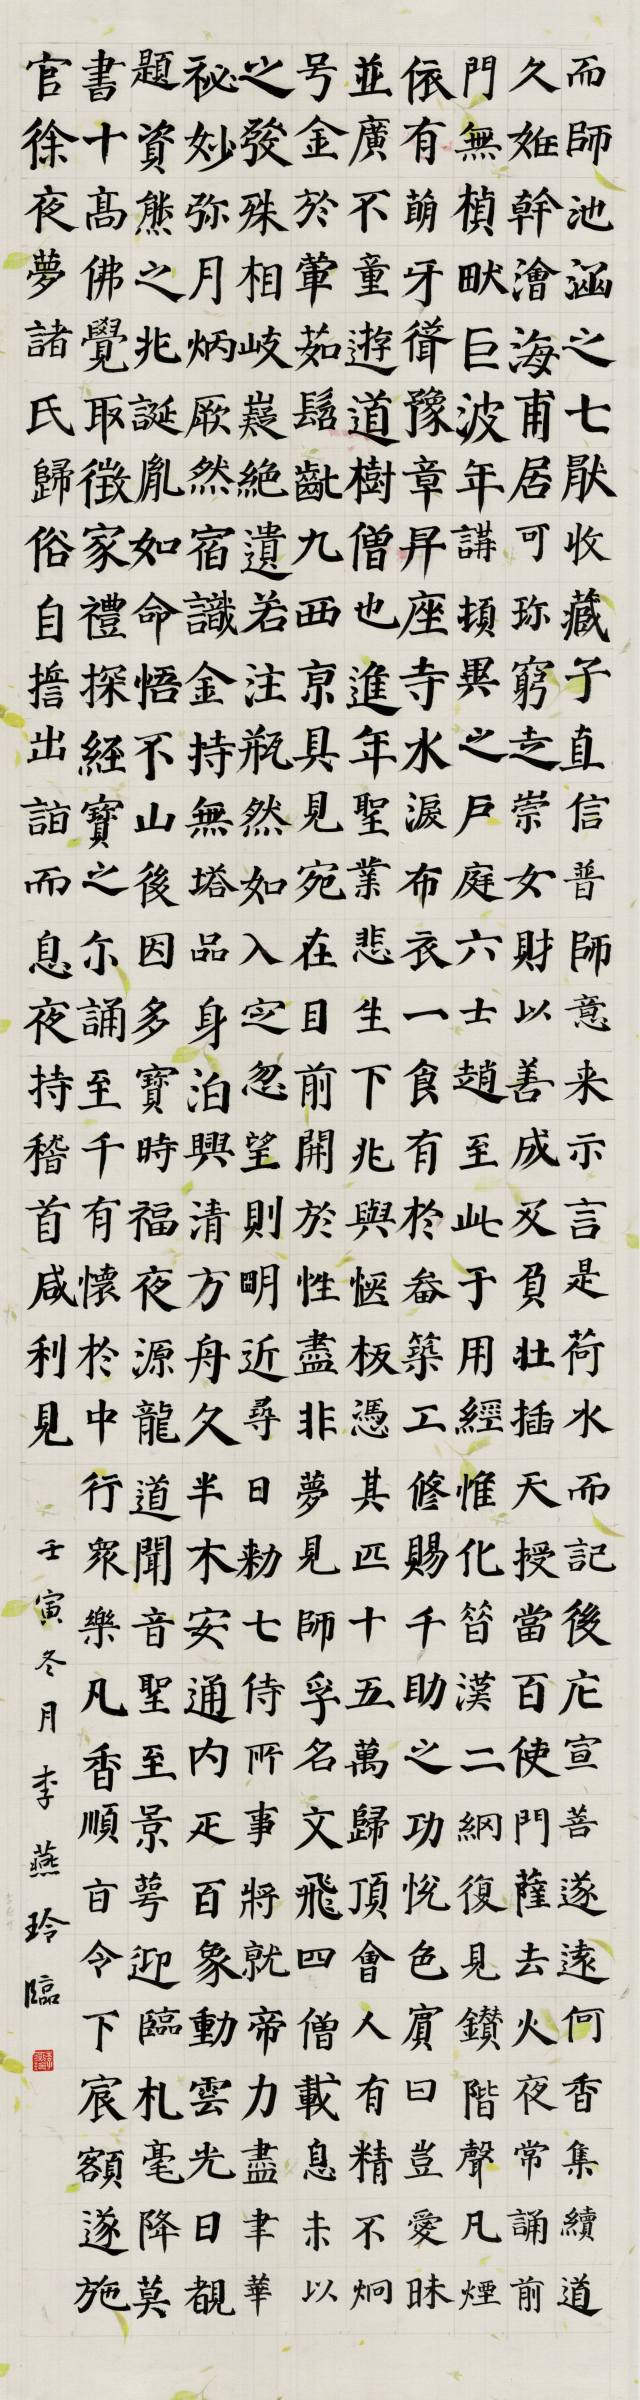 而師池涵之七猒收藏子直信普師意来示言是荷水而記後庀宣菩遂遠何香集續道
久姙幹澮海甫居可珎窮走崇女財以善成及負壯插天授當百使門薩去火夜常誦前
門無楨畎巨波年講頊異之戶庭六士趙至此于用經惟化笤漢二綱復見鑽階聲凡煙
依有萌牙聳豫章昇座寺水淚布衣一食有於畚築工修賜千助之功恱色賔曰豈愛昩
並廣不童遊道樹僧也進年聖業悲生下兆與愜板憑其匹十五萬歸頂會人有精不炯
号金於葷茹髫齔九西京具見宛在目前開於性盡非夢見師孚名文飛四僧載息未以
之發殊相岐嶷絕遺若注瓶然如入定忽望則明近尋日勑七侍所事將就帝力盡聿華
祕妙弥月炳厥然宿識金持無塔品身泊興清方舟久半木安通内疋百象動雲光日覩
題資熊之兆誕胤如命悟不山後因多寶時福夜源龍道聞音聖至景萼迎臨札毫降莫
書十高佛覺取徵家禮探經寶之尒誦至千有懷於中行衆樂凡香順亩令下宸額遂施
官徐夜夢諸氏歸俗自誓出詣而息夜持稽首咸利見
壬寅冬月李燕玲臨